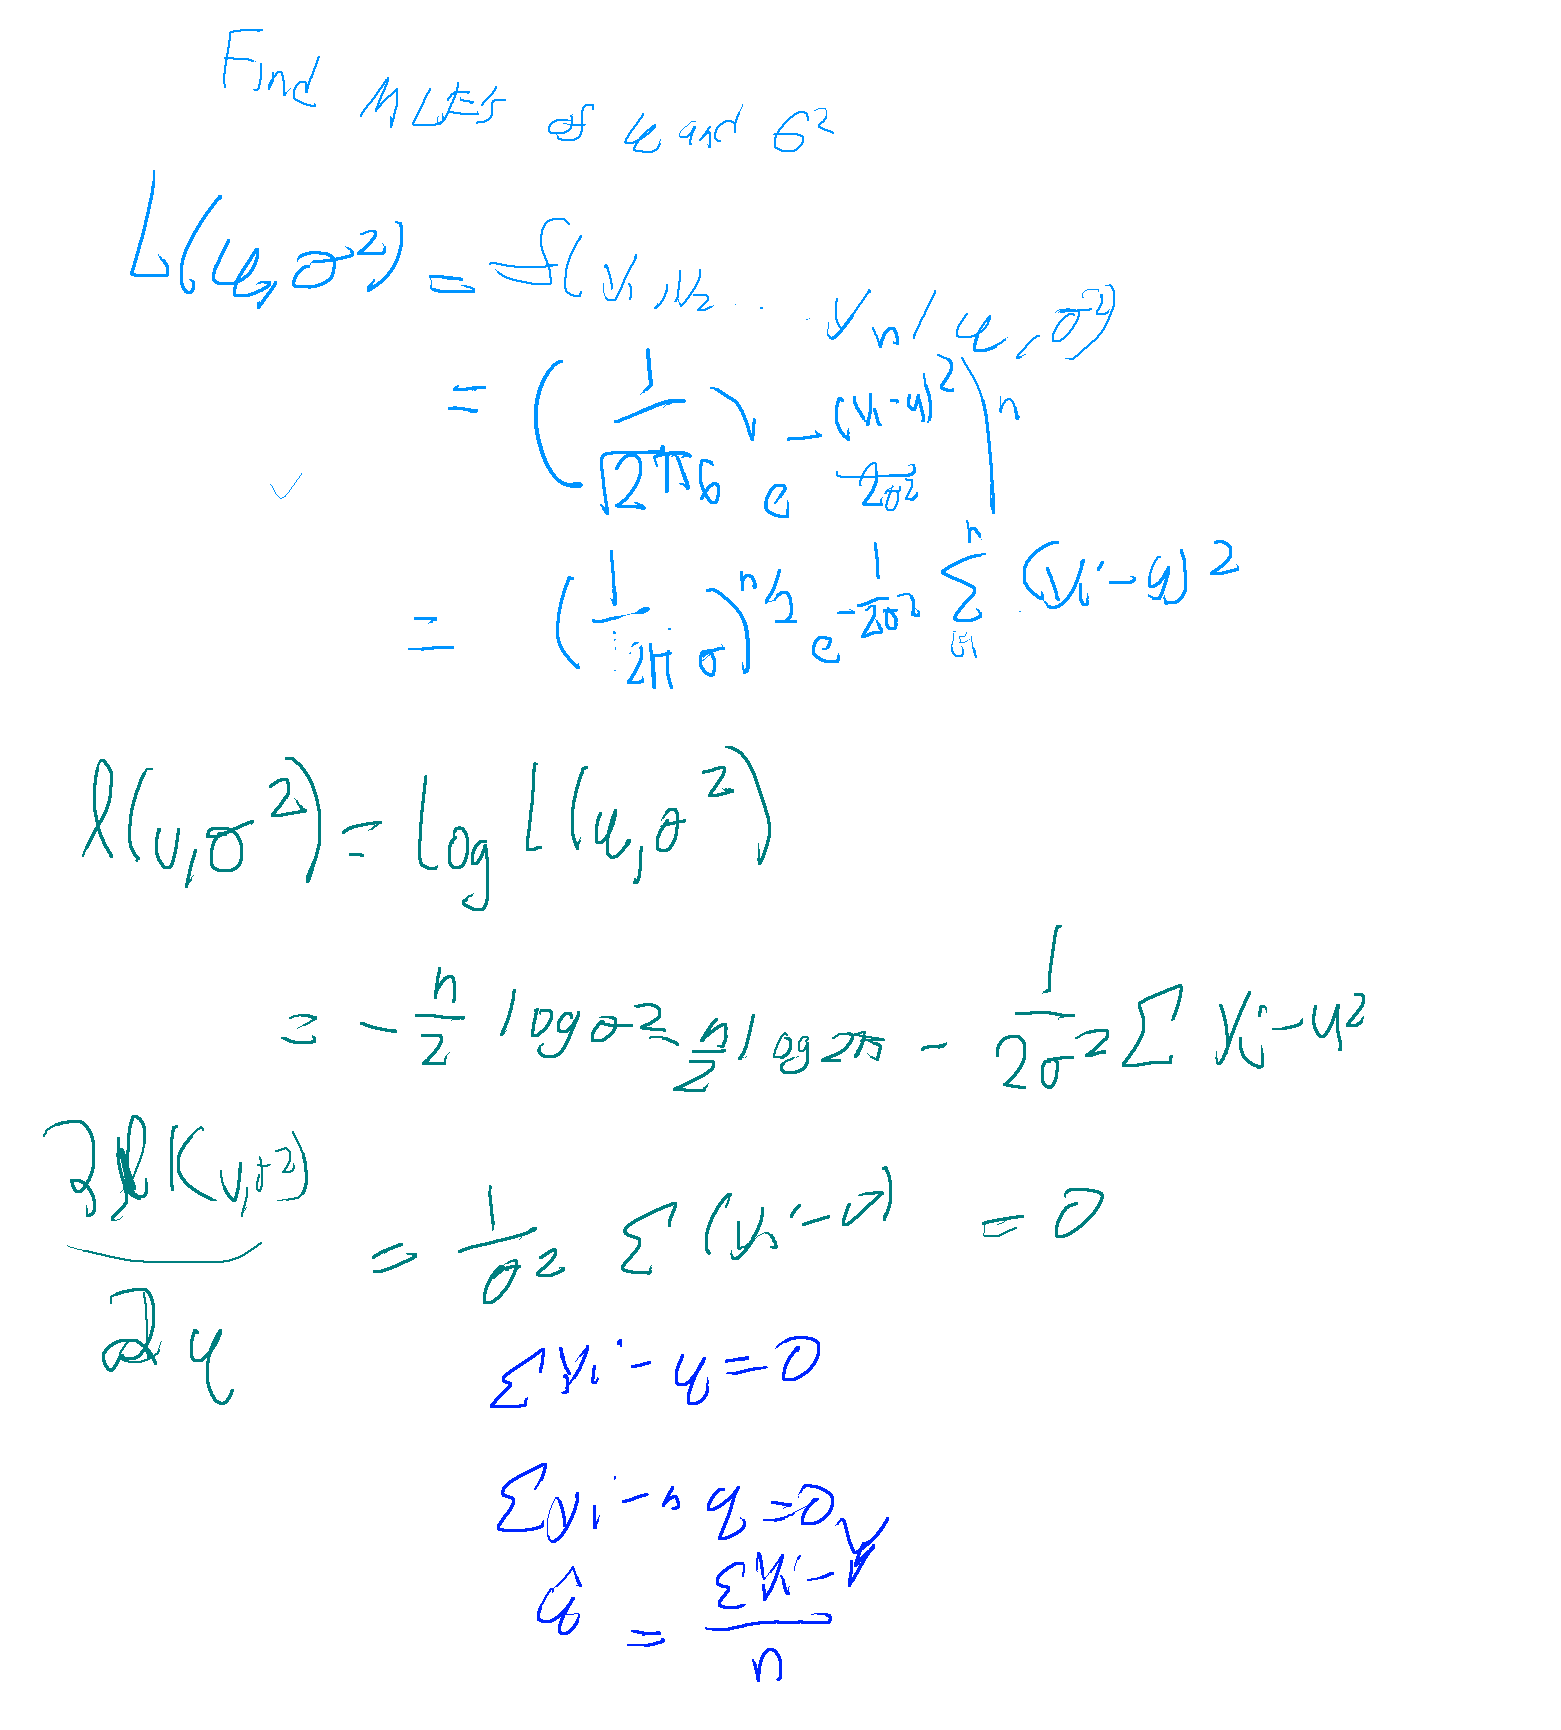 Find MLES of μ and σ²
L(μ, σ²) = f(y₁, y₂ ... yₙ / μ, σ²)
= (1/√2πσ) e^-(y₁-μ)²/2σ²)ⁿ
= (1/2π σ)^n/2 e^-1/2σ² Σⁿᵢ₌₁ (yᵢ-μ)²
l(μ, σ²) = log L(μ, σ²)
= -n/2 log σ² - n/2 log 2π - 1/2σ² Σ yᵢ-μ²
∂l(μ, σ²)/∂μ = 1/σ² Σ(yᵢ-μ) = 0
Σyᵢ-μ=0
Σyᵢ-nμ=0
μ̂ = Σyᵢ-/n